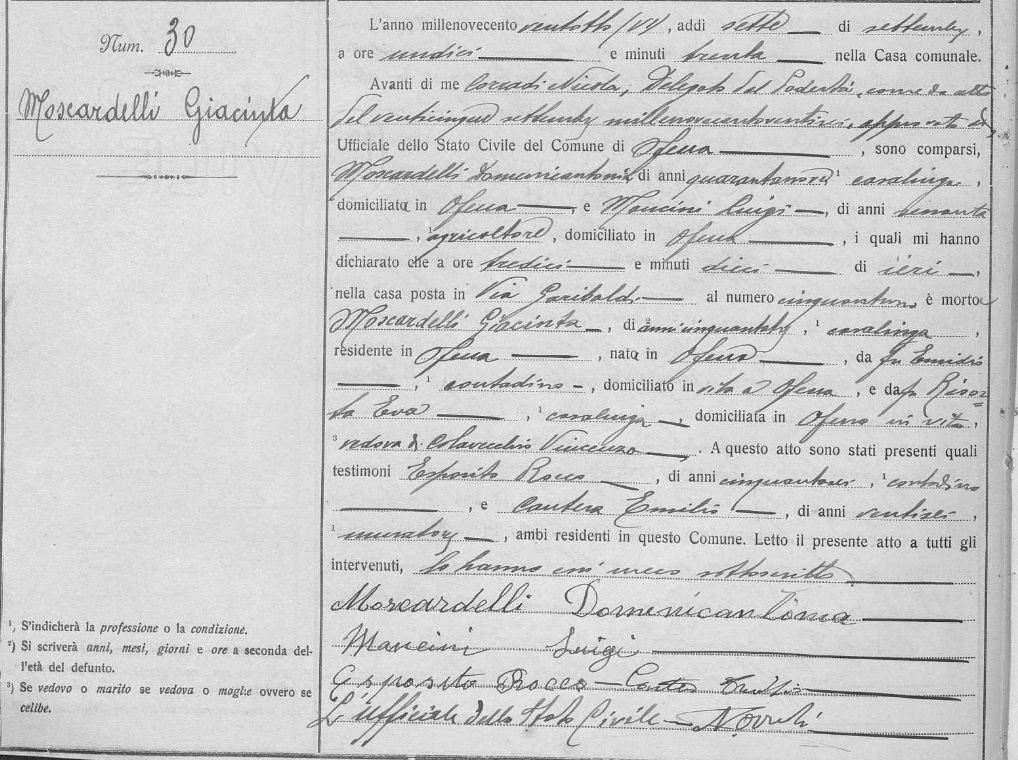 Num. 30
Moscardelli Giacinta
¹) S'indicherà la professione o la condizione.
²) Si scriverà anni, mesi, giorni e ore a seconda del-
l'età del defunto.
³) Se vedovo o marito se vedova o moglie ovvero se
celibe.
L'anno millenovecento ventotto /VI/, addì sette di settembre,
a ore undici e minuti trenta nella Casa comunale.
Avanti di me Corradi Nicola, Delegato del Podestà, come da atto
del venticinque settembre millenovecentoventisei, approvato
Ufficiale dello Stato Civile del Comune di Ofena, sono comparsi,
Moscardelli Domenicantonia, di anni quarantanove ¹ casalinga,
domiciliata in Ofena, e Mancini Luigi, di anni
, ¹ agricoltore, domiciliato in Ofena, i quali mi hanno
dichiarato che a ore tredici e minuti dieci di ieri,
nella casa posta in Via Garibaldi al numero cinquantuno, è morta
Moscardelli Giacinta, di anni cinquantotto, ¹ casalinga,
residente in Ofena, nata in Ofena, da fu Emidio
, ¹ contadino, domiciliato in vita a Ofena, e da fu Risor=
ta Eva, ¹ casalinga, domiciliata in Ofena in vita,
³ vedova di Colavecchio Vincenzo. A questo atto sono stati presenti quali
testimoni Esposito Rocco, di anni cinquantasei, ¹ contadino
, e Cantera Emilio, di anni ventisei,
¹ muratore, ambi residenti in questo Comune. Letto il presente atto a tutti gli
intervenuti, lo hanno con meco sottoscritto
Moscardelli Domenicantonia
Mancini Luigi
Esposito Rocco – Emilio
L'ufficiale dello Stato Civile –